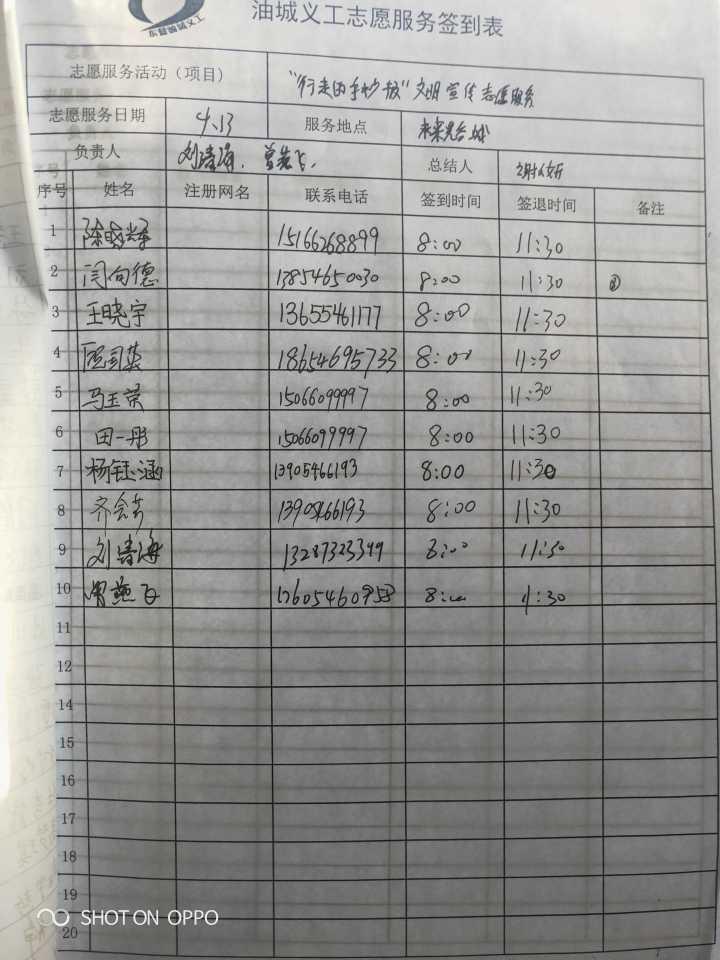 东营油城义工
油城义工志愿服务签到表
志愿服务活动（项目） "行走的手抄报"文明宣传志愿服务
志愿服务日期 4.13 服务地点 未来城
负责人 刘清海、曾燕飞. 总结人
序号 姓名 注册网名 联系电话 签到时间 签退时间 备注
1 陈 15166268899 8:00 11:30
2 闫向德 13854650030 8:00 11:30
3 王晓宇 13655461177 8:00 11:30
4 18654695733 8:00 11:30
5 马玉荣 15066099997 8:00 11:30
6 田一彤 15066099997 8:00 11:30
7 杨钰涵 13905466193 8:00 11:30
8 齐会芳 13905466193 8:00 11:30
9 刘清海 13287323399 8:00 11:30
10 曾燕飞 8:00 11:30
11
12
14
15
16
17
18
19
20
SHOT ON OPPO